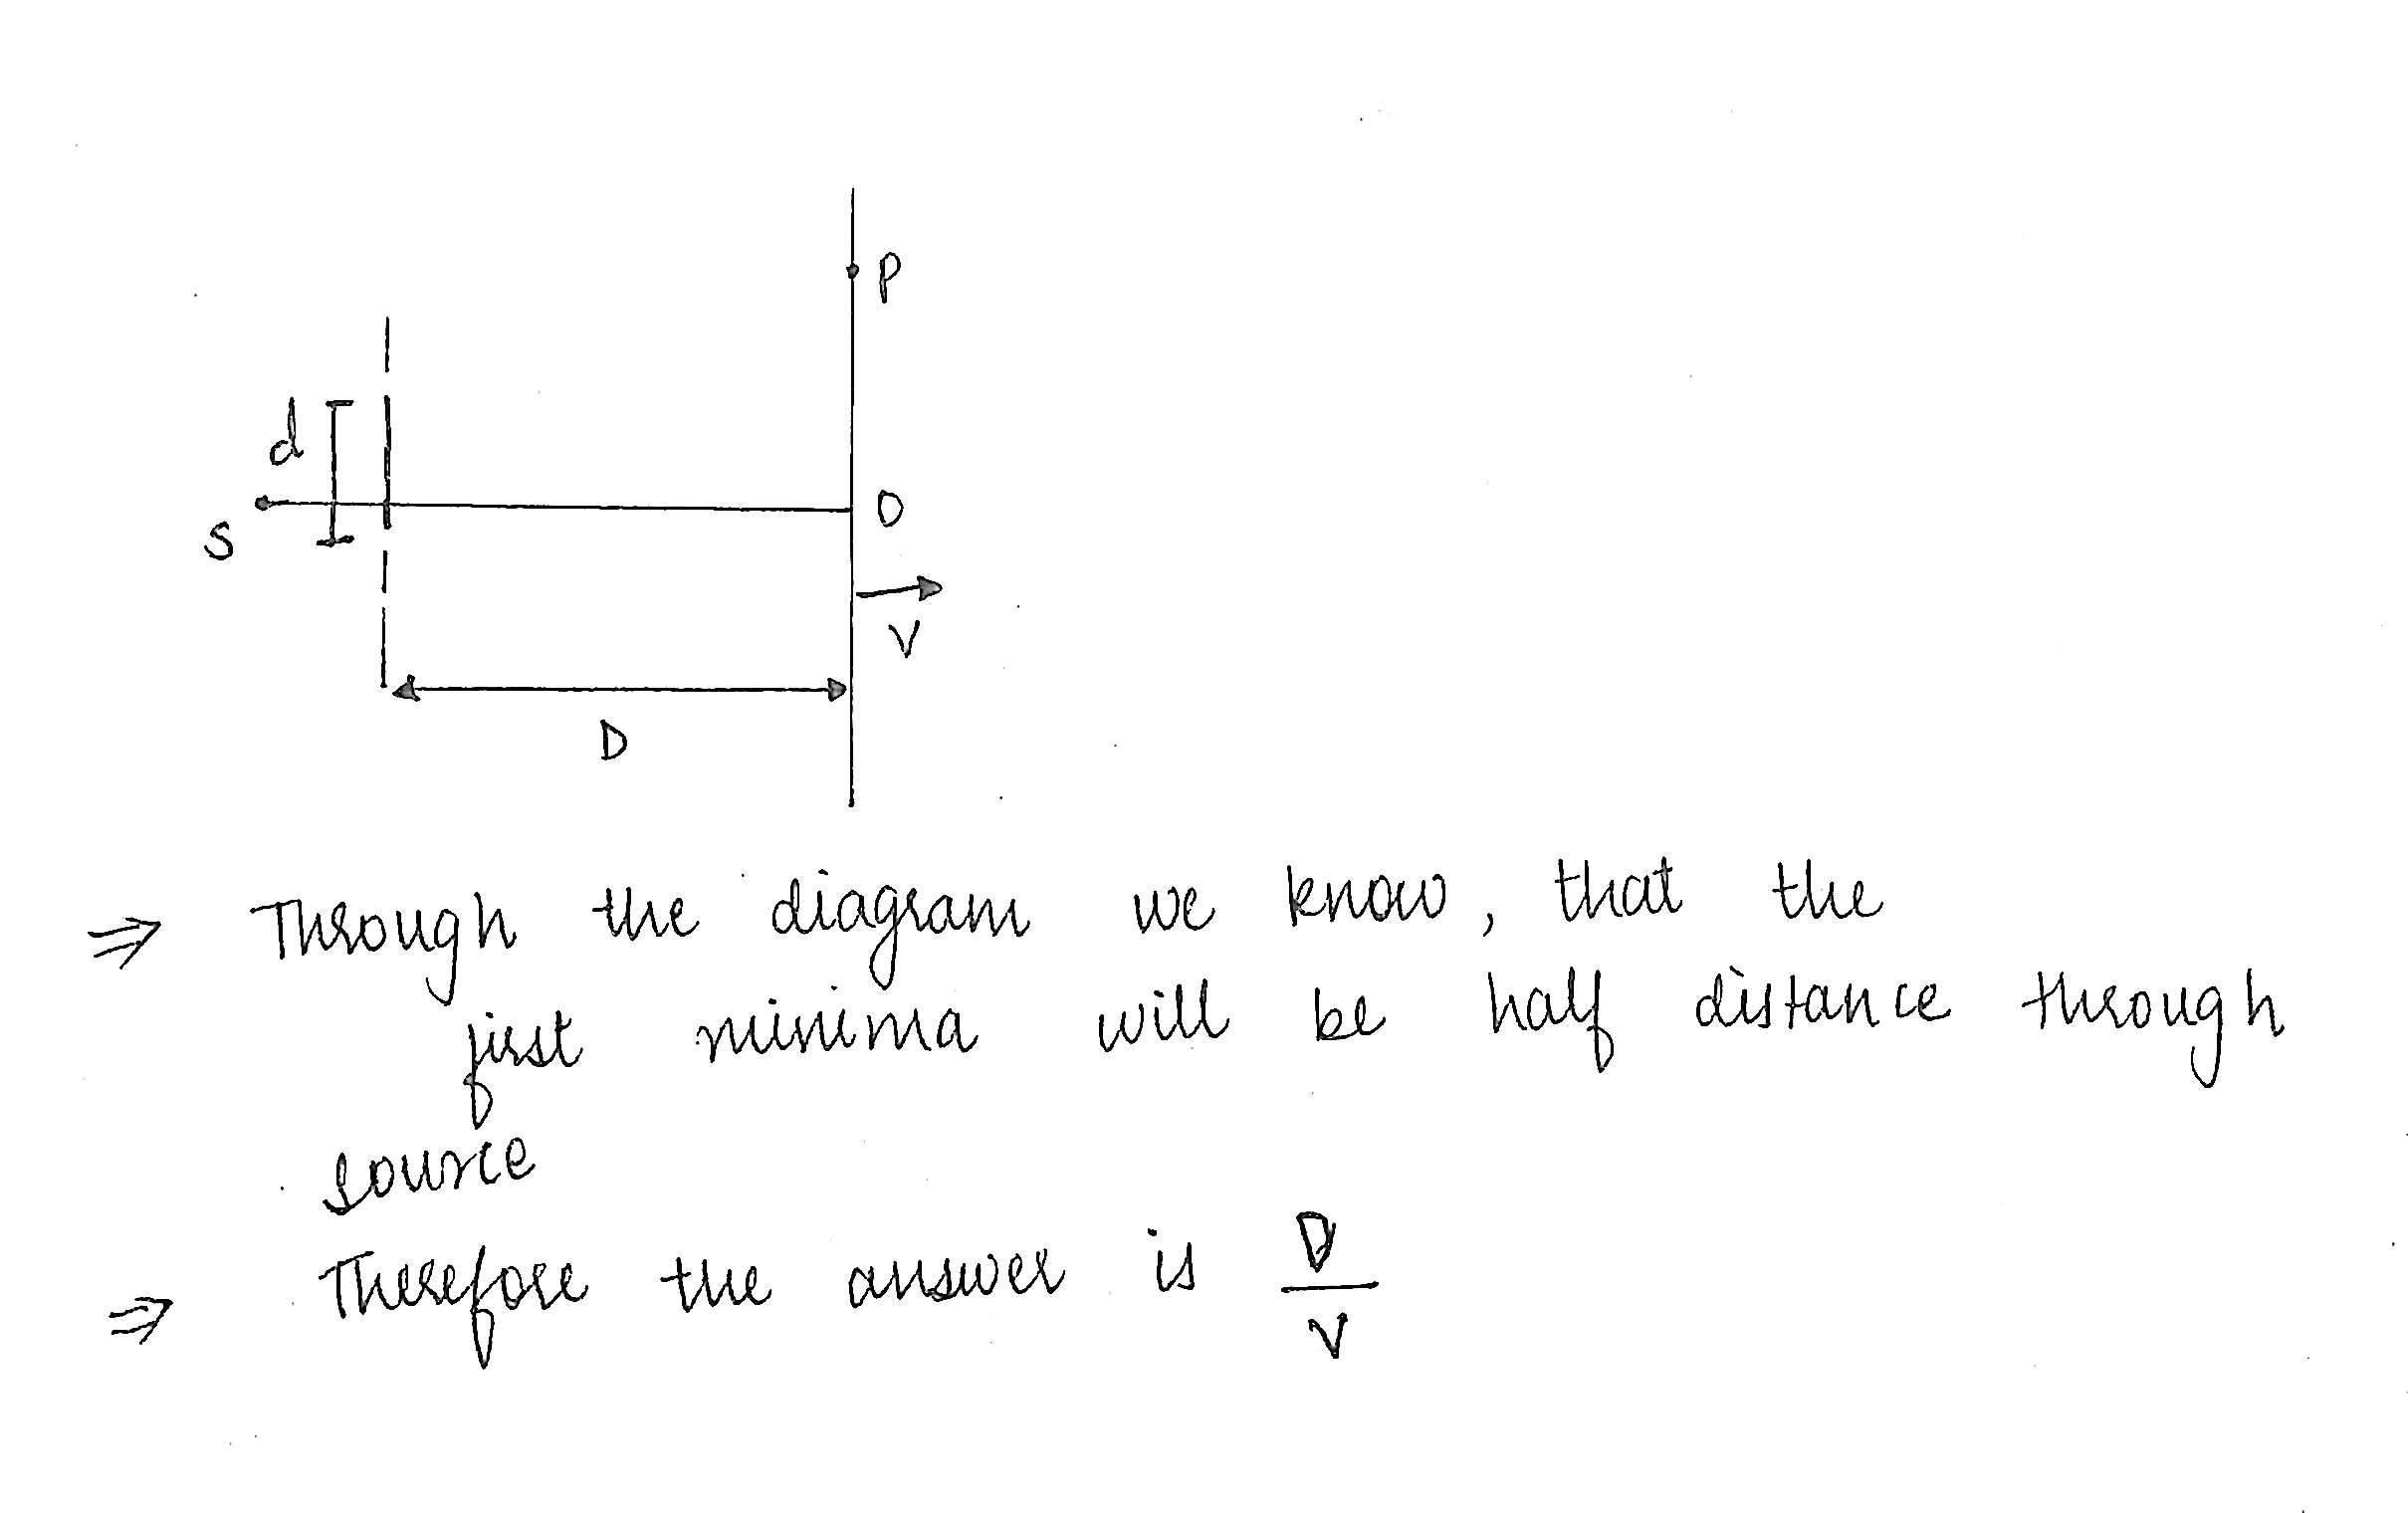 P
d
S
O
V
D
⇒ Through the diagram we know, that the
first minima will be half distance through
source
⇒ Therefore the answer is D/V